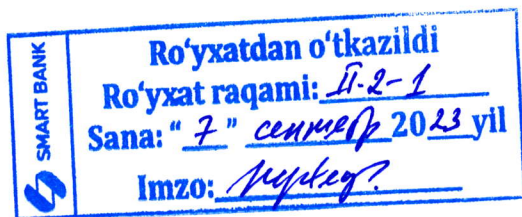 SMART BANK
Ro‘yxatdan o‘tkazildi
Ro‘yxat raqami: II-2-1
Sana: “7” сентябр 2023 yil
Imzo: